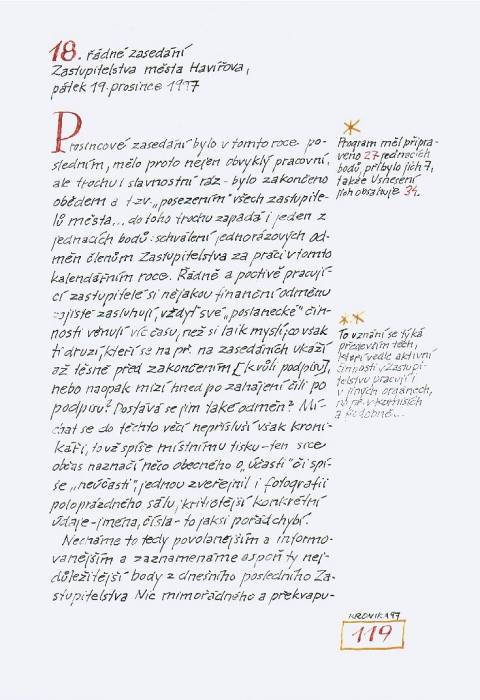 18. řádné zasedání
Zastupitelstva města Havířova,
pátek 19. prosince 1997
Prosincové zasedání bylo v tomto roce po-
sledním, mělo proto nejen obvyklý pracovní,
ale trochu i slavnostní ráz - bylo zakončeno
obědem a tzv. „posezením" všech zastupite-
lů města... do toho trochu zapadá i jeden z
jednacích bodů: schválení jednorázových od-
měn členům Zastupitelstva za práci v tomto
kalendářním roce. Řádně a poctivě pracují-
cí zastupitelé si nějakou finanční odměnu
zajisté zaslouhují, vždyť své „poslanecké" čin-
nosti věnují víc času, než si laik myslí; co však
ti druzí, kteří se na př. na zasedáních ukáží
až těsně před zakončením [kvůli podpisu],
nebo naopak mizí hned po zahájení čili po
podpisu? Dostává se jim také odměn? Mí-
chat se do těchto věcí nepřísluší však kroni-
káři, to už spíše místnímu tisku - ten sice
občas naznačí něco obecného o „účasti" či spí-
še „neúčasti", jednou zveřejnil i fotografii
poloprázdného sálu, kritičtější konkrétní
údaje - jména, čísla - to jaksi pořád chybí.
Necháme to tedy povolanějším a informo-
vanějším a zaznamenáme aspoň ty nej-
důležitější body z dnešního posledního Za-
stupitelstva Nic mimořádného a překvapu-
*
Program měl připra-
veno 27 jednacích
bodů, přibylo jich 7,
takže Usnesení
jich obsahuje 34.
*.*
To uznání se týká
především těch,
kteří vedle aktivní
činnosti v Zastupi-
telstvu pracují i
v jiných orgánech,
na př. v komisích
a podobně...
KRONIKA 97
119